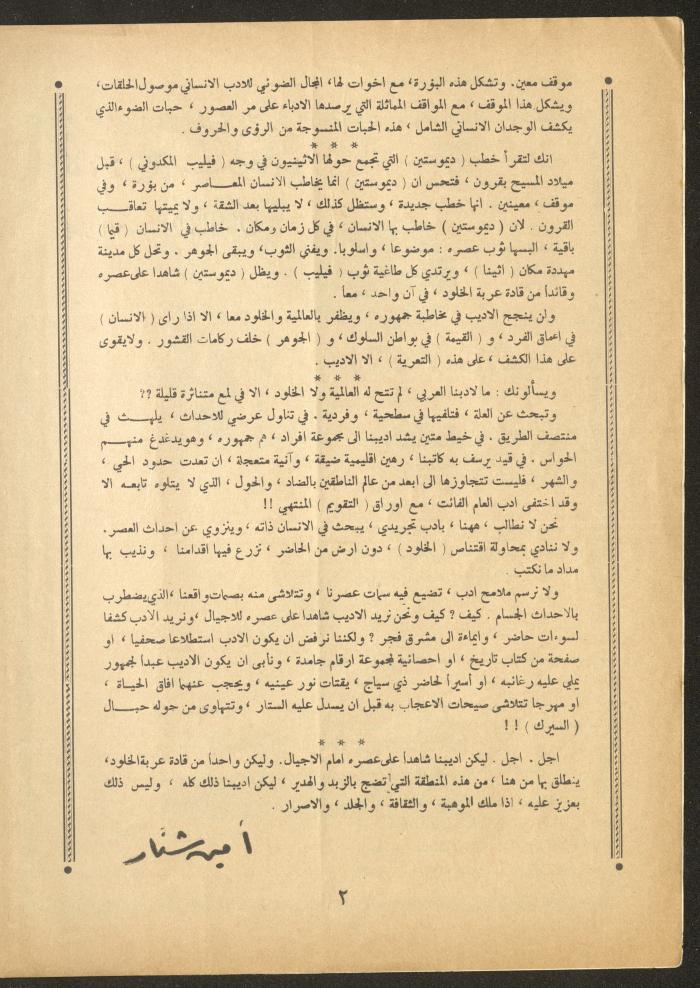 موقف معين. وتشكل هذه البؤرة، مع اخوات لها، المجال الضوئي للادب الانساني موصول الحلقات،
ويشكل هذا الموقف، مع المواقف المماثلة التي يرصدها الادباء على مر العصور، حبات الضوء الذي
يكشف الوجدان الانساني الشامل، هذه الحبات المنسوجة من الرؤى والحروف.
* * *
انك لتقرأ خطب (ديموستين) التي تجمع حولها الاثينيون في وجه (فيليب المكدوني)، قبل
ميلاد المسيح بقرون، فتحس ان (ديموستين) انما يخاطب الانسان المعاصر، من بؤرة، وفي
موقف، معينين. انها خطب جديدة، وستظل كذلك، لا يبليها بعد الشقة، ولا يميتها تعاقب
القرون. لان (ديموستين) خاطب بها الانسان، في كل زمان ومكان. خاطب في الانسان (قيما)
باقية، البسها ثوب عصره: موضوعا، واسلوبا. ويفنى الثوب، ويبقى الجوهر. وتحل كل مدينة
مهددة مكان (اثينا)، ويرتدي كل طاغية ثوب (فيليب). ويظل (ديموستين) شاهدا على عصره
وقائداً من قادة عربة الخلود، في آن واحد، معاً.
ولن ينجح الاديب في مخاطبة جمهوره، ويظفر بالعالمية والخلود معا، الا اذا راى (الانسان)
في اعماق الفرد، و (القيمة) في بواطن السلوك، و (الجوهر) خلف ركامات القشور. ولا يقوى
على هذا الكشف، على هذه (التعرية)، الا الاديب.
* * *
ويسألونك: ما لادبنا العربي، لم تتح له العالمية ولا الخلود، الا في لمع متناثرة قليلة ??
وتبحث عن العلة، فتلفيها في سطحية، وفردية. في تناول عرضي للاحداث، يلهث في
منتصف الطريق. في خيط متين يشد اديبنا الى مجموعة افراد، هم جمهوره، وهو يدغدغ منهم
الحواس. في قيد يرسف به كاتبنا، رهين اقليمية ضيقة، وآنية متعجلة، ان تعدت حدود الحي،
والشهر، فليست تتجاوزها الى ابعد من عالم الناطقين بالضاد، والحول، الذي لا يتلوه تابعه الا
وقد اختفى ادب العام الفائت، مع اوراق (التقويم) المنتهي !!
نحن لا نطالب، ههنا، بادب تجريدي، يبحث في الانسان ذاته، وينزوي عن احداث العصر.
ولا ننادي بمحاولة اقتناص (الخلود)، دون ارض من الحاضر، نزرع فيها اقدامنا، ونذيب بها
مداد ما نكتب.
ولا نرسم ملامح ادب، تضيع فيه سمات عصرنا، وتتلاشى منه بصمات واقعنا، الذي يضطرب
بالاحداث الجسام. كيف ? كيف ونحن نريد الاديب شاهدا على عصره للاجيال، ونريد الادب كشفا
لسوءات حاضر، وايماءة الى مشرق فجر ? ولكننا نرفض ان يكون الادب استطلاعا صحفيا، او
صفحة من كتاب تاريخ، او احصائية لمجموعة ارقام جامدة، ونأبى ان يكون الاديب عبداً لجمهور
يملي عليه رغائبه، او أسيراً لحاضر ذي سياج، يقتات نور عينيه، ويحجب عنهما افاق الحياة،
او مهرجا تتلاشى صيحات الاعجاب به قبل ان يسدل عليه الستار، وتتهاوى من حوله حبال
(السيرك) !!
* * *
اجل. اجل. ليكن اديبنا شاهداً على عصره امام الاجيال. وليكن واحداً من قادة عربة الخلود،
ينطلق بها من هنا، من هذه المنطقة التي تضج بالزبد والهدير، ليكن اديبنا ذلك كله، وليس ذلك
بعزيز عليه، اذا ملك الموهبة، والثقافة، والجلد، والاصرار.
أمين شنار
٢